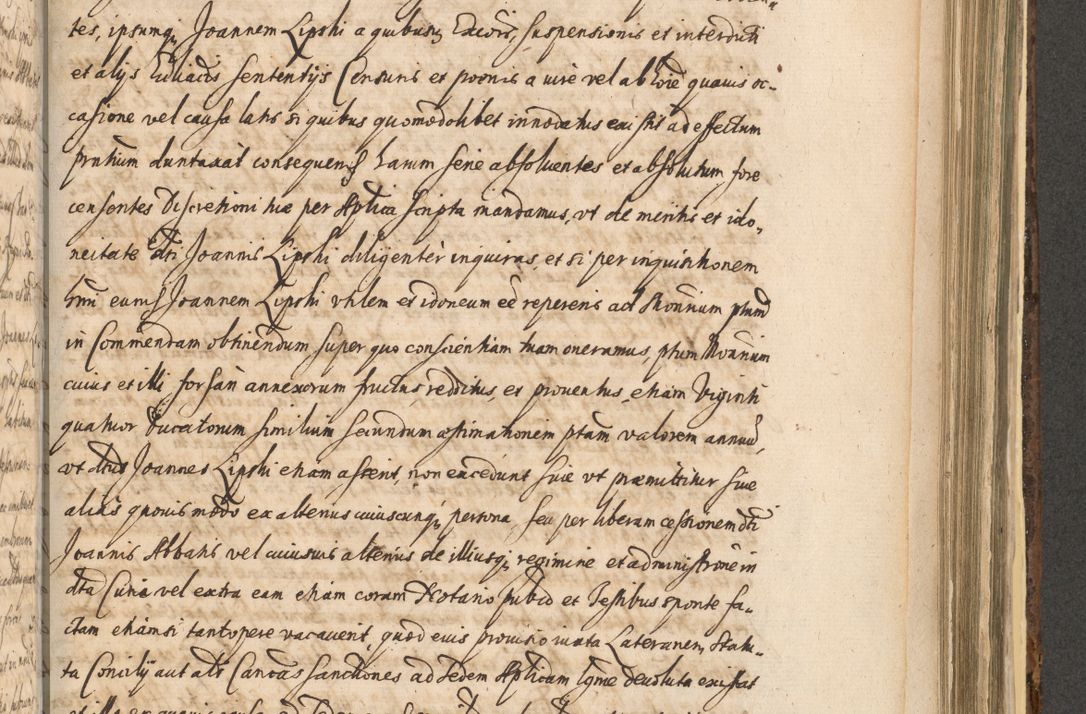 tes, ipsumq, Joannem Lipski a quibusuis Excõis, suspensionis et interdicti
et alijs Eccliacis sententijs Censuris et poenis a iure vel ab hoïe quauis oc-
casione vel causa latis si quibus quomodolibet innodatus existit ad effectum
pñtium duntaxat consequend harum serie absoluentes et absolutum fore
censentes Discretioni tuæ per Aplica scripta mandamus, vt de meritis et ido-
neitate dti Joannis Lipski diligenter inquiras, et si per inquisitionem
hmi eumd Joannem Lipski vtilem et idoneum eẽ repereris ad Monrium ptum
in Commendam obtinendum, super quo conscientiam tuam oneramus, ptum Monrium
cuius et illi forsan annexorum fructus, redditus, et prouentus, etiam Viginti
quatuor Ducatorum similium secundum æstimationem ptam valorem annuũ,
vt dtus Joannes Lipski etiam asserit, non excedunt siue vt præmittitur siue
alias quouis modo ex alterius cuiuscunq, persona, seu per liberam cessionem dti
Joannis Abbatis vel cuiusuis alterius de illiusq, regimine et administrone in
dta Curia vel extra eam etiam coram Notario pubco et Testibus sponte fa-
ctam etiamsi tantopere vacauerit, quod eius prouisio iuxta Lateranen, statu-
ta Concilij aut als Canoãs sanctiones ad Sedem Aplicam lgme deuoluta existat